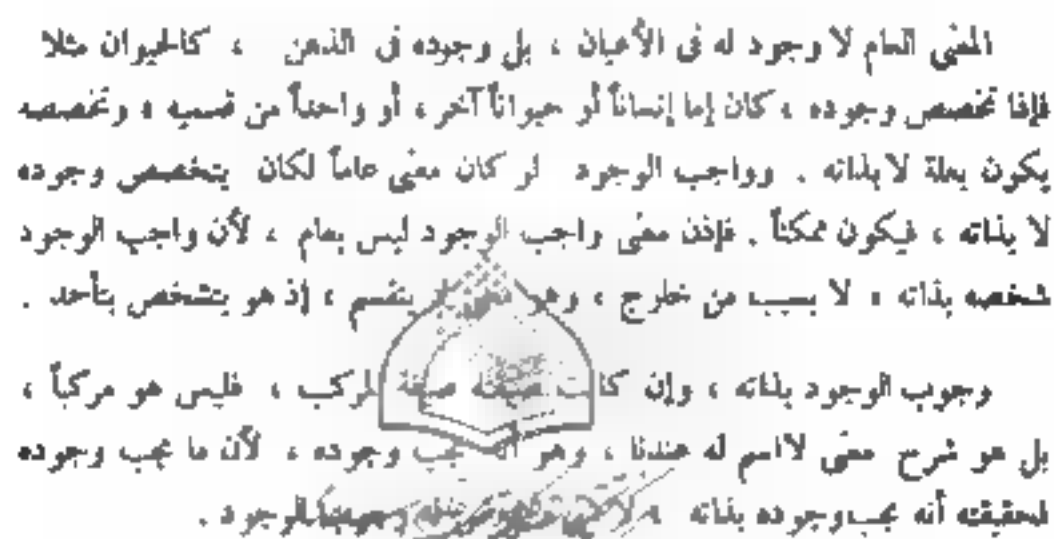 المعنى العام لا وجود له فى الأعيان ، بل وجوده فى الذهن ، كالحيوان مثلا
فإذا تخصص وجوده ، كان إما إنساناً أو حيواناً آخر ، أو واحداً من قسميه ، وتخصصه
يكون بعلة لا بذاته . وواجب الوجود لو كان معنى عاماً لكان يتخصص وجوده
لا بذاته ، فيكون ممكناً . فإذن معنى واجب الوجود ليس بعام ، لأن واجب الوجود
شخصه بذاته ، لا بسبب من خارج ، وهو معنى لا ينقسم ، إذ هو يتشخص بتأحد .
وجوب الوجود بذاته ، وإن كانت صيغته صيغة المركب ، فليس هو مركباً ،
بل هو شرح معنى لا اسم له عندنا ، وهو أنه يجب وجوده ، لأن ما يجب وجوده
فحقيقته أنه يجب وجوده بذاته ، لا الوجود .